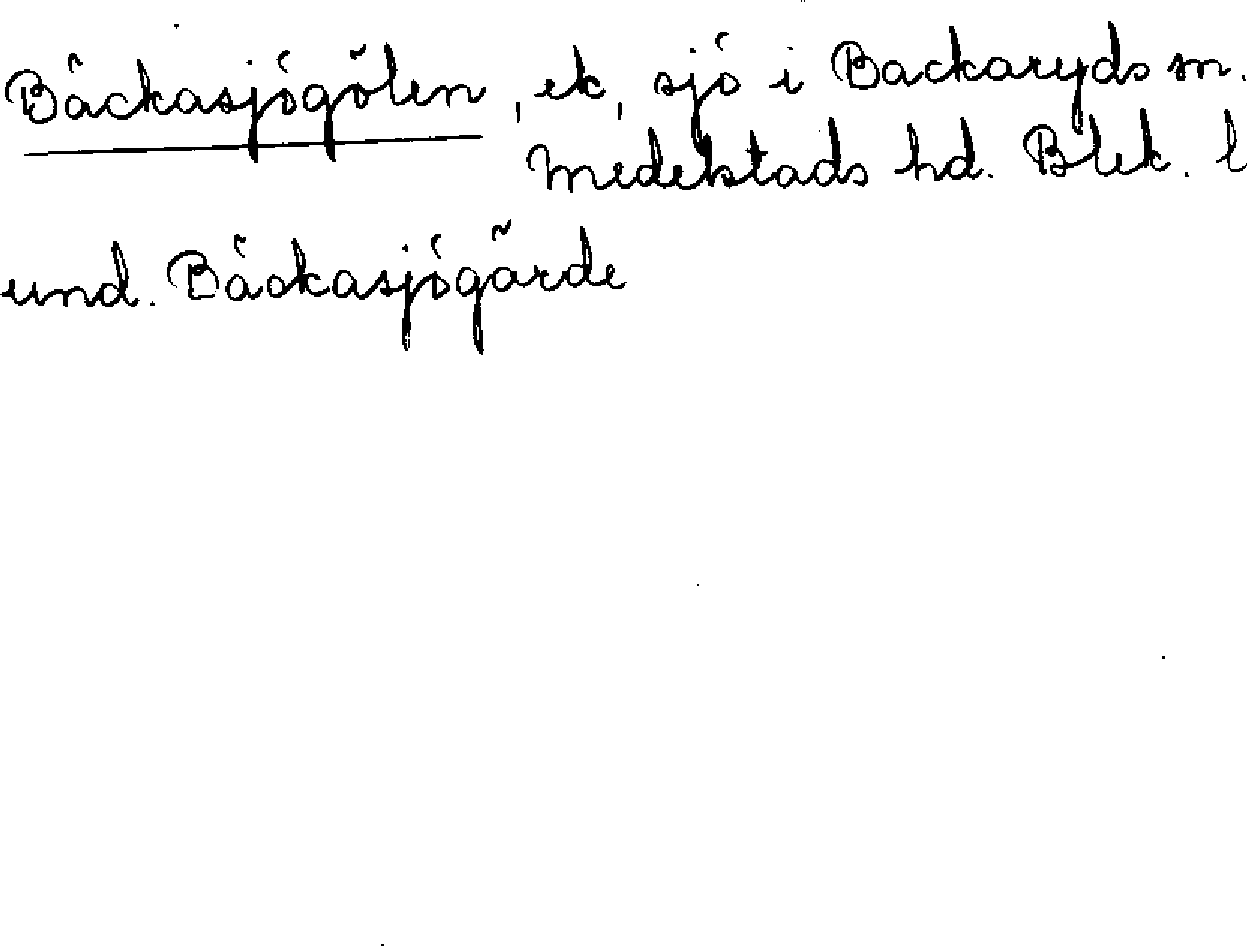 Bäckasjögölen, ek, sjö i Backaryds sn.
Medelstads hd. Blek. l
und. Bäckasjögärde